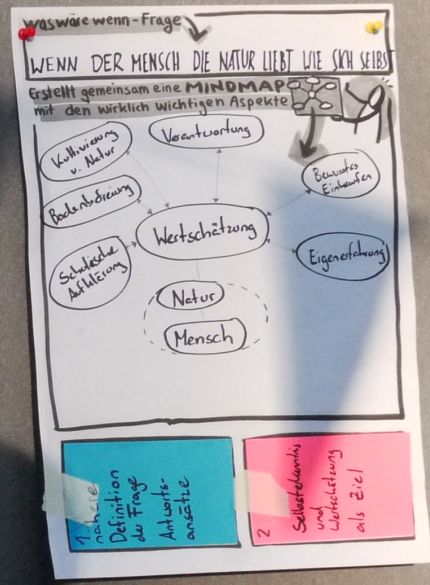 was wäre wenn-Frage
WENN DER MENSCH DIE NATUR LIEBT WIE SICH SELBST
Erstellt gemeinsam eine MINDMAP
mit den wirklich wichtigen Aspekte
Kultivierung
v. Natur
Verantwortung
Bewusstes
Einkaufen
Wertschätzung
Schulische
Aufklärung
Eigenerfahrung
Natur
Mensch
1.
nähere
Definition
der Frage
Antworts-
ansätze
2
Selbsterkenntnis
und
Wertschätzung
als Ziel